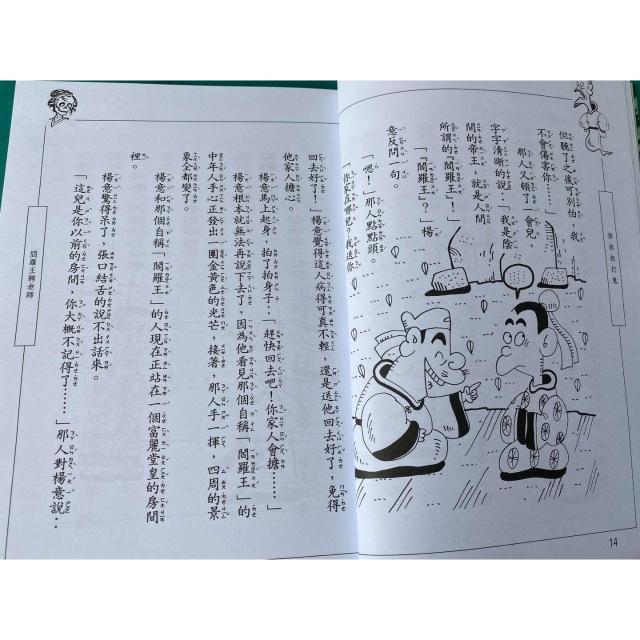 張叔叔打鬼
但聽了之後可別怕，我
不會傷害你……」
那人又頓了一會兒
字字清晰的說：「我是陰
間的帝王，就是人間
所謂的『閻羅王』！」
「『閻羅王』？」楊
意反問一句。
「嗯！」那人點點頭。
「你家在哪呢？我送你
14
回去好了！」楊意覺得這人病得可真不輕，還是送他回去好了，免得
他家人擔心。
楊意馬上起身，拍了拍身子：「趕快回去吧！你家人會擔……」
楊意根本就無法再說下去了，因為他看見那個自稱「閻羅王」的
中年人手心正發出一團金黃色的光芒，接著，那人手一揮，四周的景
象全都變了。
楊意和那個自稱「閻羅王」的人現在正站在一個富麗堂皇的房間
裡。
楊意驚得呆了，張口結舌的說不出話來。
「這兒是你以前的房間，你大概不記得了……」那人對楊意說：
閻羅王聘老師